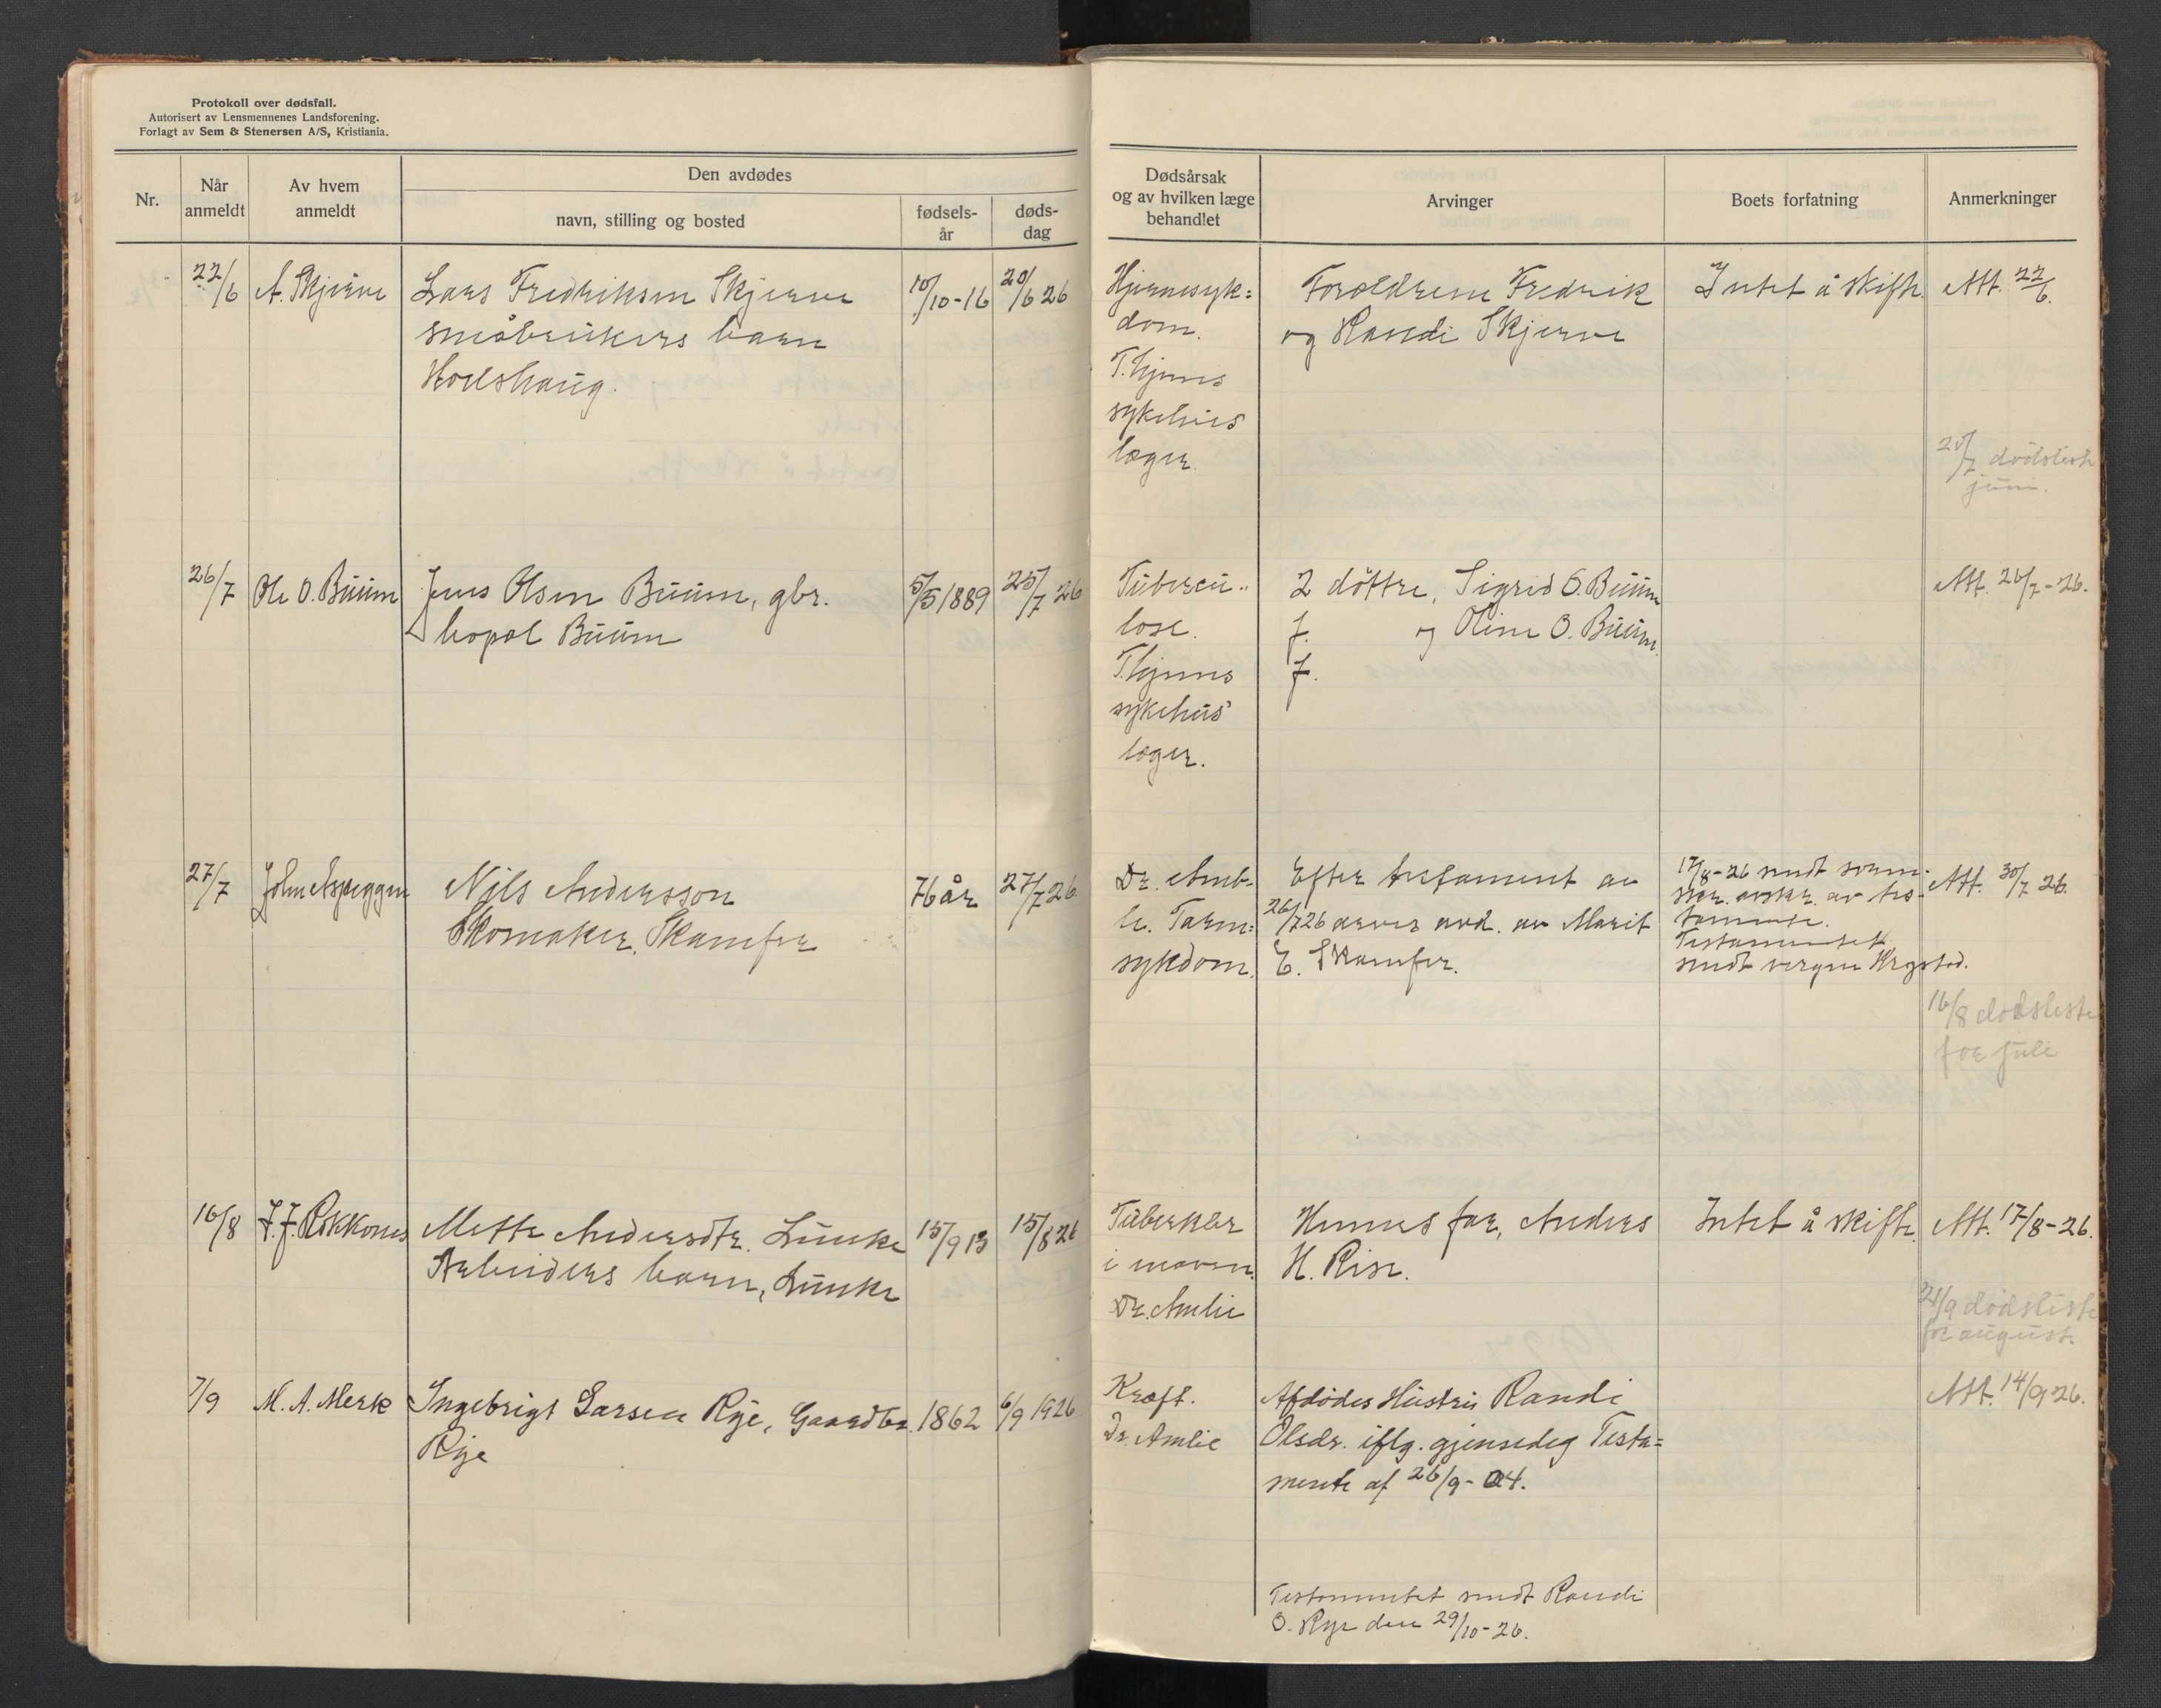 Protokoll over dødsfall.
Autorisert av Lensmennenes Landsforening.
Forlagt av Sem & Stenersen A/S, Kristiania.
Nr.
Når anmeldt
Av hvem anmeldt
Den avdødes
navn, stilling og bosted
fødsels-år
døds-dag
Dødsårsak og av hvilken læge behandlet
Arvinger
Boets forfatning
Anmerkninger
22/6 A. Skjerve Lars Fredriksen Skjerve 10/10-16 20/6 26
småbrukers barn
Hjernesyk=
dom.
T.hjems
sykehus
læger.
Foreldrene Fredrik
og Randi Skjerve
Intet å skifte.
Att. 22/6.
20/7 dødsliste
juni.
26/7 Ole O. Buum Jens Olsen Buum, gbr. 5/5 1889 25/7 26
bopæl Buum
Tubercu-
lose.
T.hjems
sykehus
læger.
2 døttre, Sigrid O. Buum
f. og Oline O. Buum.
f.
Att. 26/7-26.
27/7 John Aspeggen Nils Andersson 76 år 27/7 26
Skomaker, Skamfer
Dr. Amb-
le. Tarm=
sykdom.
Efter testament av
26/7 26 arves avd. av Marit
E. Skamfer.
17/8-26 sendt soren-
skr. avskr. av tes-
tamente.
Testamentet
sendt vergen Krystad.
Att. 30/7 26.
16/8 dødsliste
for juli
16/8 J. J. Rokkones Mette Andersdtr. Lunke 15/9 13 15/8 26
Arbeiders barn, Lunke
Tuberkler
i maven.
Dr. Amlie
Hennes far, Anders
H. Rise.
Intet å skifte.
Att. 17/8-26.
21/9 dødsliste
for august.
7/9 M. A. Merk Ingebrigt Larsen Rye, Gaardbr. 1862 6/9 1926
Rye
Kræft.
Dr. Amlie
Afdødes Hustru Randi
Olsdr. iflg. gjensedeg Testa=
mente af 26/9-04.
Att. 14/9 26.
Testamentet sendt Randi
O. Rye den 29/10-26.